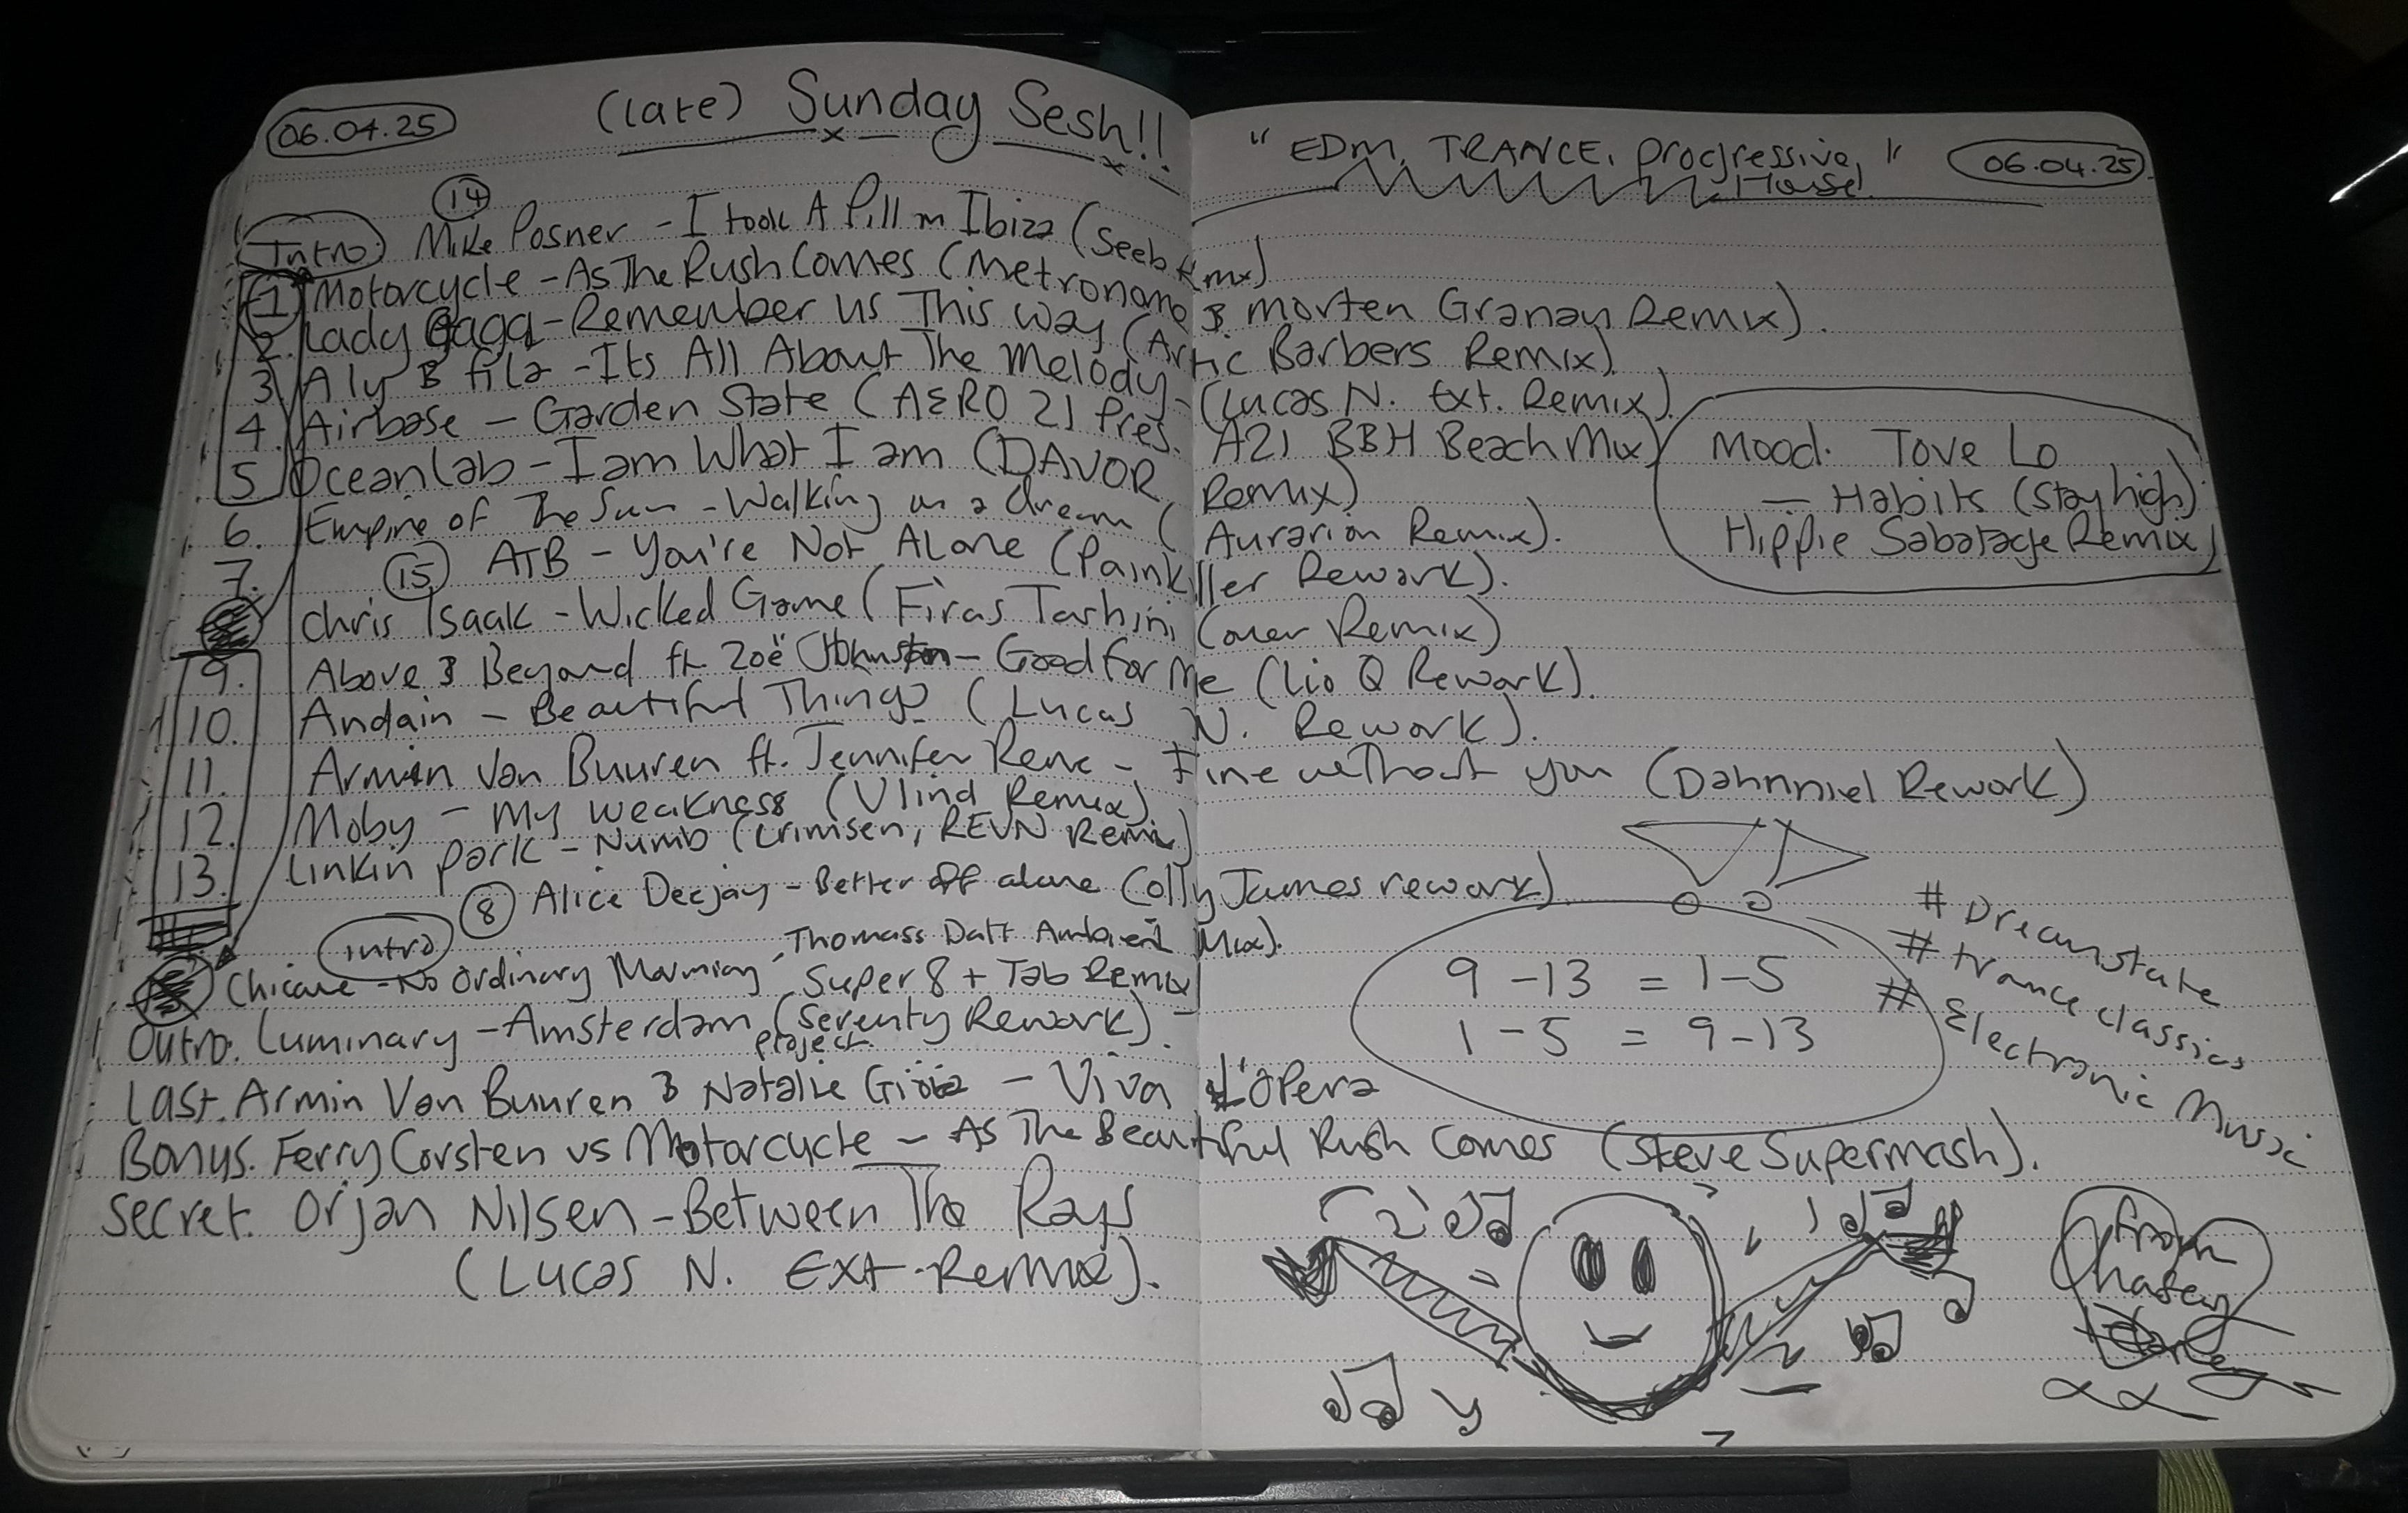 06.04.25 (late) Sunday Sesh!!
"EDM, TRANCE, Progressive, House" 06.04.25
14
Intro: Mike Posner - I took A Pill in Ibiza (Seeb Rmx)
1 Motorcycle - As The Rush Comes (Metronome & Morten Granau Remix).
2. Lady Gaga - Remember Us This Way (Artic Barbers Remix)
3. Aly & fila - Its All About The Melody - (Lucas N. Ext. Remix)
4. Airbase - Garden State (AERO 21 Pres. A21 BBH Beach Mix)
5 Oceanlab - I am What I am (DAVOR Remix)
6. Empire of The Sun - Walking on a dream (Aurarion Remix).
7. 15 ATB - You're Not Alone (Painkiller Rework).
Chris Isaak - Wicked Game (Firas Tarhini Cover Remix)
9. Above & Beyond ft. Zoë Johnston - Good For Me (Lio Q Rework).
10. Andain - Beautiful Things (Lucas N. Rework).
11. Armin Van Buuren ft. Jennifer Rene - Fine without you (Dahnniel Rework)
12. Moby - My weakness (Vlind Remix)
13. Linkin Park - Numb (Crimsen, REVN Remix)
8 Alice Deejay - Better off alone (Olly James rework)
intro Thomass Datt Ambient Mix).
Chicane - No Ordinary Morning - Super 8 + Tab Remix
Outro. Luminary - Amsterdam (Serenity Rework) -
project
Last. Armin Van Buuren & Natalie Gioia - Viva L'Opera
Bonus. Ferry Corsten vs Motorcycle - As The Beautiful Rush Comes (Steve Supermash).
Secret. Orjan Nilsen - Between The Rays
(Lucas N. Ext. Remix).
Mood. Tove Lo
- Habits (Stay high)
Hippie Sabatage Remix
9 - 13 = 1 - 5
1 - 5 = 9 - 13
# Dreamstate
# trance classics
# Electronic Music
from